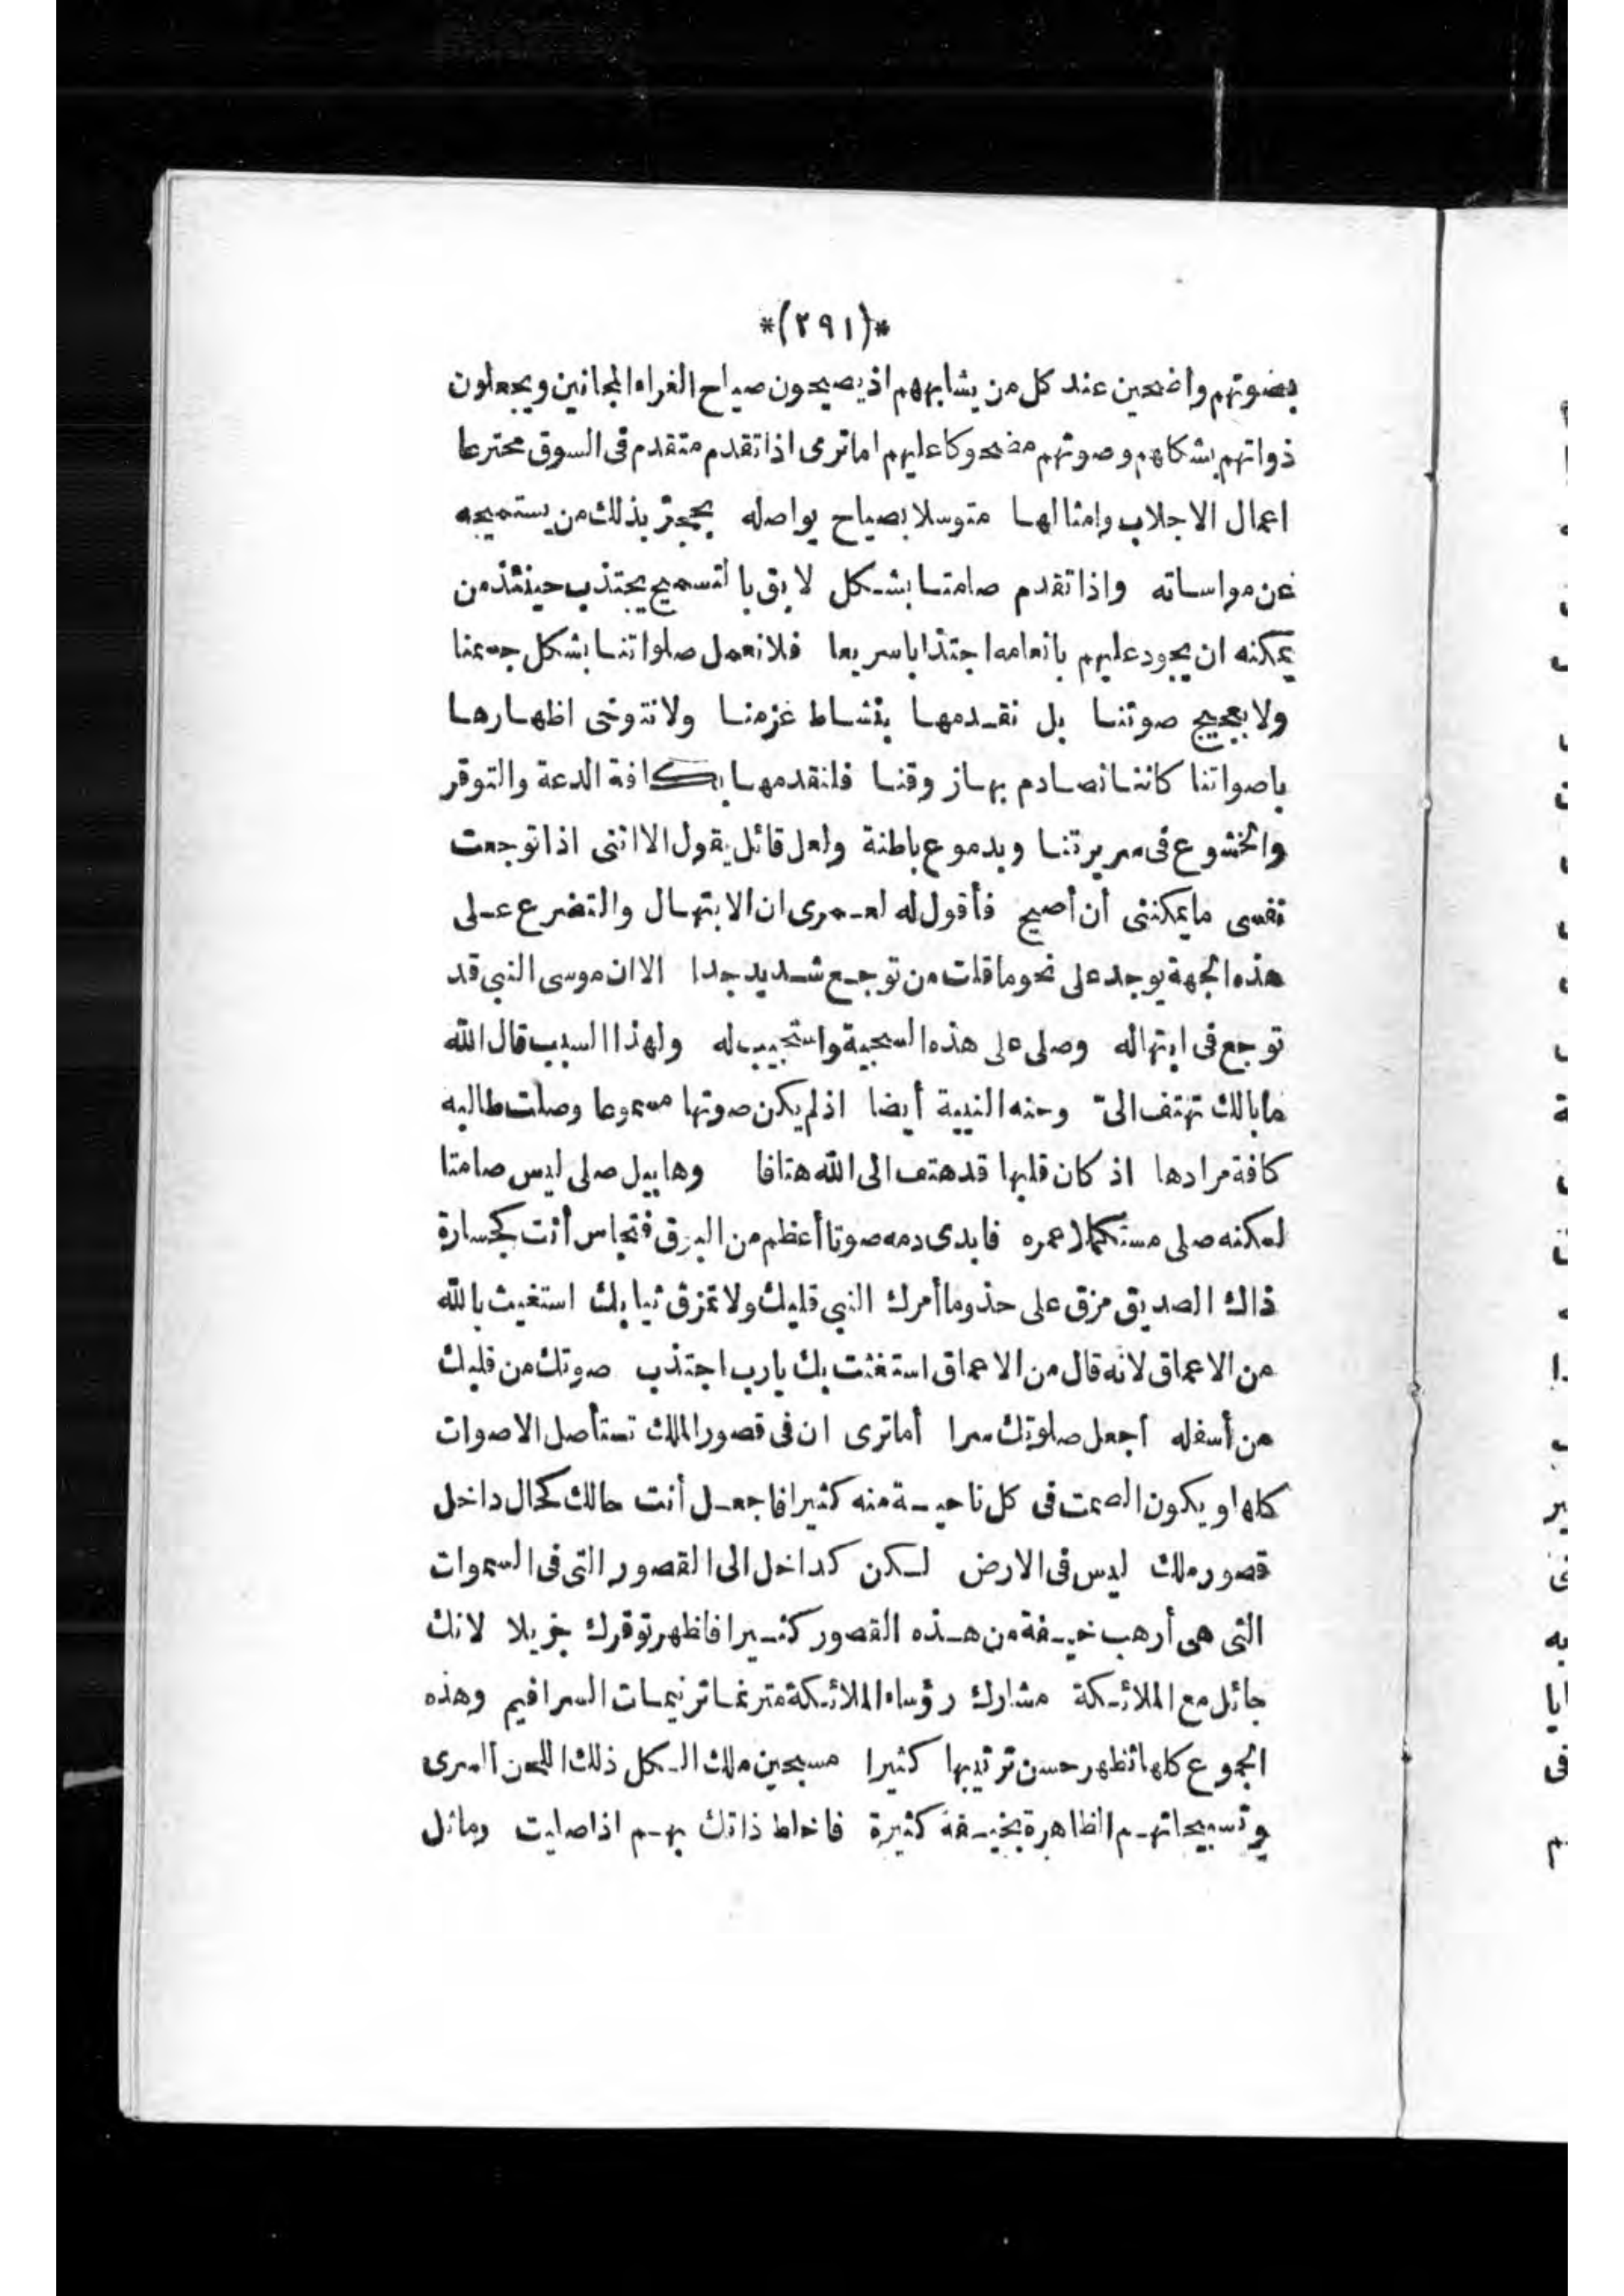 *(٢٩١)*
بصوتهم واضحين عند كل من يشابههم اذ يصيحون صياح الغراء المجانين ويجعلون
ذواتهم بشكلهم وصوتهم مضحوكا عليهم اما ترى اذا تقدم متقدم فى السوق مخترعا
اعمال الاجلاب وامثالها متوسلا بصياح يواصله يحجز بذلك من يستميحه
عن مواساته واذا تقدم صامتا بشكل لايق بالتسميح يجتذب حينئذ من
يمكنه ان يجود عليهم بانعامه اجتذابا سريعا فلا نعمل صلواتنا بشكل جسمنا
ولا بعجيج صوتنا بل نقدمها بنشاط عزمنا ولا نتوخى اظهارها
باصواتنا كاننا نصادم بها زوقنا فلنقدمها بكافة الدعة والتوقر
والخشوع فى سريرتنا وبدموع باطنة ولعل قائل يقول الا اننى اذا توجعت
نفسى ما يمكننى أن أصيح فأقول له لعمرى ان الابتهال والتضرع على
هذه الجهة يوجد على نحو ما قلت من توجع شديد جدا الا ان موسى النبى قد
توجع فى ابتهاله وصلى على هذه السجية واستجيب له ولهذا السبب قال الله
ما بالك تهتف الىّ وحنه النبية أيضا اذ لم يكن صوتها مسموعا وصلت طالبه
كافة مرادها اذ كان قلبها قد هتف الى الله هتافا وهابيل صلى ليس صامتا
لكنه صلى مستكملا عمره فابدى دمه صوتا أعظم من البوق فتجاسر أنت كجسارة
ذاك الصديق مزق على حذو ما أمرك النبى قلبك ولا تمزق ثيابك استغيث بالله
من الاعماق لانه قال من الاعماق استغثت بك يارب اجتذب صوتك من قلبك
من أسفله اجعل صلوتك سرا أما ترى ان فى قصور الملك تستأصل الاصوات
كلها ويكون الصمت فى كل ناحية منه كثيرا فاجعل أنت حالك كحال داخل
قصور ملك ليس فى الارض لكن كداخل الى القصور التى فى السموات
التى هى أرهب خيفة من هذه القصور كثيرا فاظهر توقرك جزيلا لانك
جائل مع الملائكة مشارك رؤساء الملائكة مترنما ترنيمات السرافيم وهذه
الجموع كلها تظهر حسن ترتيبها كثيرا مسبحين ملك الكل ذلك اللحن السرى
وتسبيحاتهم الظاهرة بخيفة كثيرة فاخلط ذاتك بهم اذا صليت وماثل